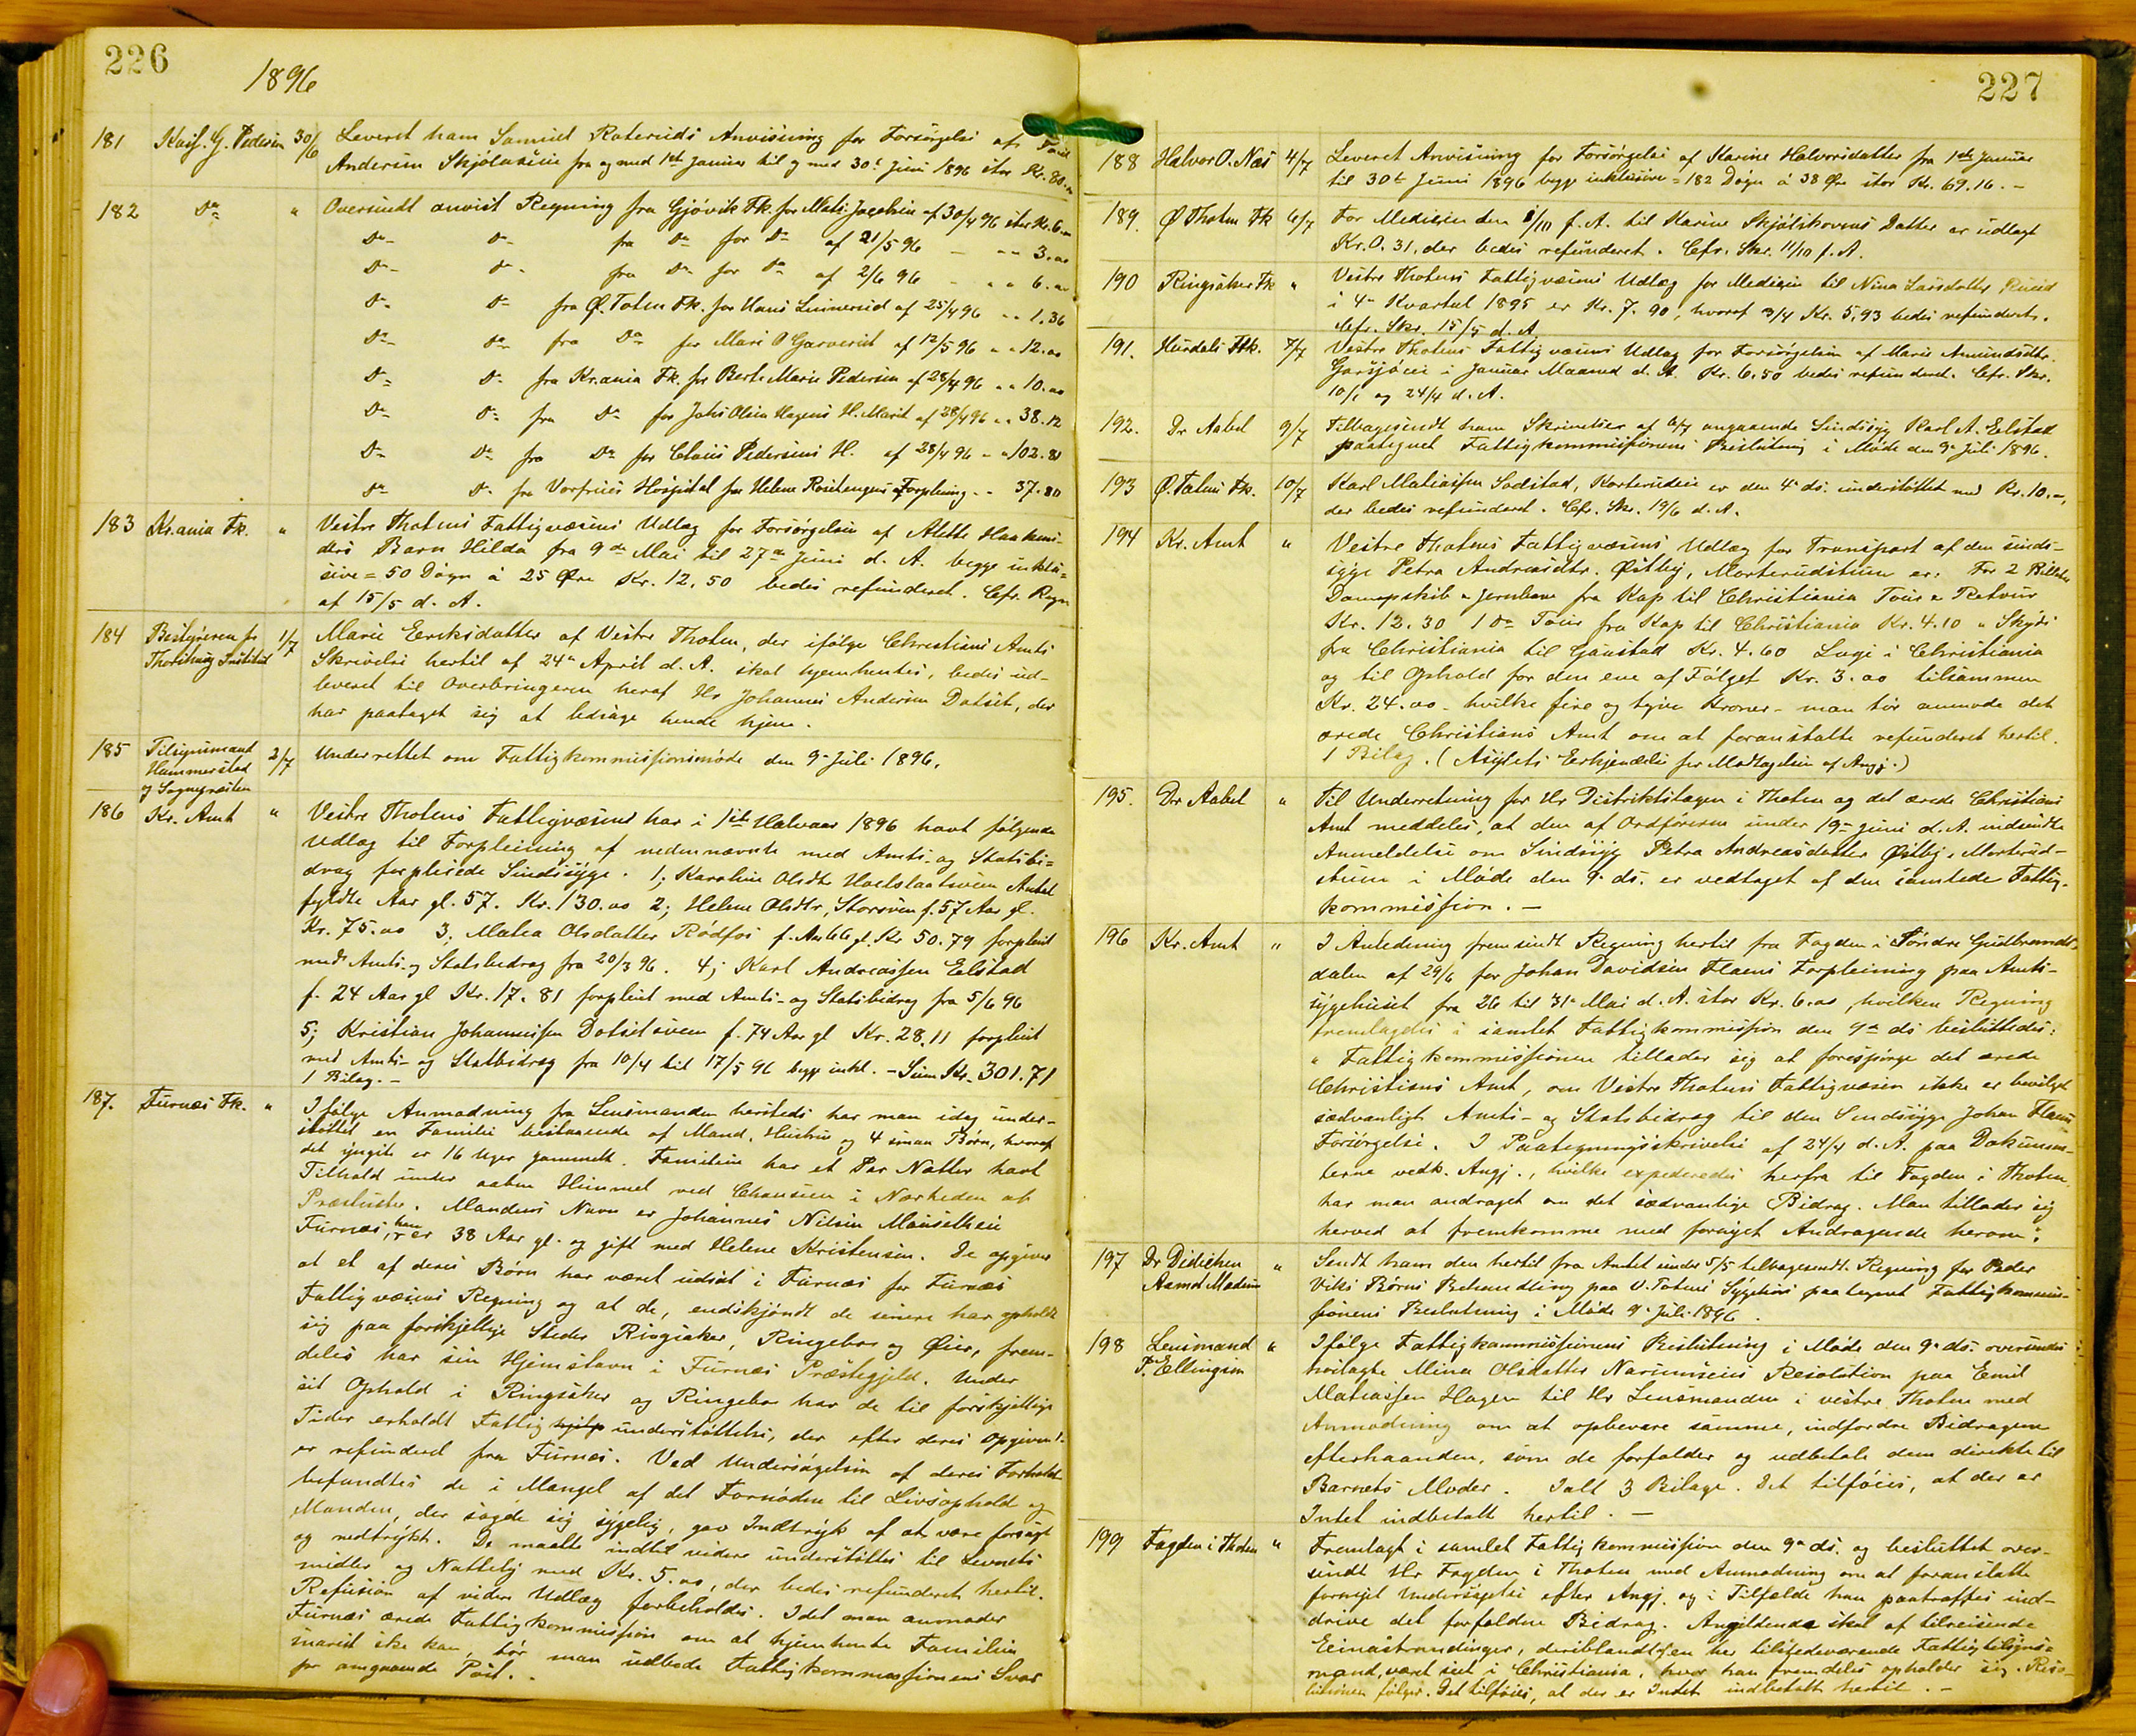 226
1896
181 Kass. G. Pedersen 30/6 Leveret ham Samuel Roteruds Anvisning for Forsørgelse af
Andersen Skjølaasen fra og med 1ste Januar til og med 30te Juni 1896 stor Kr. 80.
182 Do " Oversendt anvist Regning fra Gjøvik Fk. for Mathi Jacobsen af 30/4 96 stor Kr. 6.
Do- Do- fra Do for Do af 21/5 96 - - " 3.00
Do- Do- fra Do for Do af 2/6 96 - " " 6.00
Do- Do fra Ø. Toten Fk. for Hans Linnerud af 25/4 96 " " 1.36
Do- Do fra Do for Mari O Garverist af 12/5 96 " " 12.00
Do- Do- fra Kr.ania Fk. for Berte Marie Pedersen af 28/4 96 " " 10.00
Do- Do- fra Do for Johs Olsen Hagens H. Marit af 28/4 96 " " 38.12
Do- Do fra Do for Claus Pedersens H. af 28/4 96 - " 102.81
Do Do- fra Vorfrues Hospital for Helene Rosenengens Forpleining - - 37.80
183 Kr.ania Fk. " Vestre Thotens Fattigvæsens Udlæg for Forsørgelsen af Alette Haakens-
ders Barn Hilda fra 9de Mai til 27de Juni d. A. begge inklu=
sive = 50 Døgn á 25 Øre Kr. 12,50 bedes refunderet. Cfr. Regn
af 15/5 d. A.
184 Bestyreren for 1/7 Marie Eeriksdatter af Vestre Thoten, der ifølge Christians Amts
Institut Skrivelse hertil af 24de April d. A. skal hjemhentes, bedes ud-
leveret til Overbringeren heraf Hr Johannes Andersen Dotset, der
har paataget sig at ledsage hende hjem.
185 Tilsynsmand 2/7 Underrettet om Fattigkommissionsmøde den 9de Juli 1896.
Hammerstad
og Sognepræsten
186 Kr. Amt " Vestre Thotens Fattigvæsend har i 1ste Halvaar 1896 havt følgende
Udlæg til Forpleining af nedennævnte med Amts- og Statsbi=
drag forpleiede Sindssyge. 1; Karoline Olsdtr Antal
fyldte Aar gl. 57. Kr. 130.00 2; Helene Olsdtr, Storsveen f. 57 Aar gl.
Kr. 75.00 3; Mathea Olsdatter Rødfos f. Aar gl. Kr 50.79 forpleiet
med Amts- og Statsbidrag fra 20/3 96. 4; Karl Andreassen Eelstad
f. 24 Aar gl Kr. 17.81 forpleiet med Amts- og Statsbidrag fra 5/6 96
5; Kristian Johannessen Dotsetsveen f. 74 Aar gl Kr. 28.11 forpleiet
med Amts- og Statbidrag fra 10/4 til 17/5 96 begge inkl. - Sum Kr. 301.71
1 Bilag. -
187. Furnæs Fk. " Ifølge Anmodning fra Lensmanden hersteds har man idag under-
støttet en Familie bestaaende af Mand, Hustru og 4 smaa Børn, hvoraf
det yngste er 16 Uger gammelt. Familien har et Par Nætter havt
Tilhold under aaben Himmel ved Chauseen i Nærheden af
. Mandens Navn er Johannes Nilsen Mauselheie
Furnæs, han er 38 Aar gl. og gift med Helene Kristensen. De opgiver
at et af deres Børn har været udsat i Furnæs for Furnæs
Fattigvæsens Regning og at de, endskjøndt de senere har opholdt
sig paa forskjellige Steder Ringsaker, Ringebo og Øier, frem-
deles har sin Hjemstavn i Furnæs Præstegjeld. Under
sit Ophold i Ringsaker og Ringebo har de til forskjellige
Tider erholdt Fattig understøttelse, der efter deres Opgivende
er refunderet fra Furnæs. Ved Undersøgelsen af deres Forhold
befandtes de i Mangel af det Fornødne til Livsophold og
Manden, der sagde sig sygelig, gav Indtryk af at være forsagt
og nedtrykt. De maatte indtil videre understøttes til Levnets
midler og Nattely med Kr. 5.00, der bedes refunderet hertil.
Refusion af videre Udlæg forbeholdes. Idet man anmoder
Furnæs ærede Fattigkommission om at hjemhente Familien
snarest ske kan, tør man udbede Fattigkommissionens Svar
pr omgaaende Post.
227
188 Halvor O. Næs 4/7 Leveret Anvisning for Forsørgelse af Karine Halvorsdatter fra 1ste Januar
til 30te Juni 1896 begge inklusive = 182 Døgn á 38 Øre stor Kr. 69.16. -
189. Ø Thoten Fk 6/7 For Medisin den /10 f. A. til Karine Skjølskovens Datter er udlagt
Kr. 0.31, der bedes refunderet. Cfr. Skr. 11/10 f. A.
190 Ringsaker Fk " Vestre Thotens Fattigvæsens Udlæg for Medisin til Nina Larsdatter Ruud
i 4de Kvartal 1895 er Kr. 7.90, hvoraf 3/4 Kr. 5,93 bedes refunderet.
Cfr. Skr. 15/5 d. A.
191. Hurdals Fk. 7/7 Vestre Thotens Fattigvæsens Udlæg for Forsørgelsen af Marie Amundsdtr.
Garsjøeie i Januar Maaned d. A. Kr. 6.50 bedes refunderet. Cfr. Skr.
10/1 og 24/4 d. A.
192. Dr Aabel 9/7 Tilbagesendt ham Skrivelser af 6/7 angaaende Sindssyg Karl A. Eelstad
paategnet Fattigkommissionens Beslutning i Møde den 9de Juli 1896.
193 Ø. Totens Fk. 10/7 Karl Mathiassen Sodstad, Korterudeie er den 4de ds. understøttet med Kr. 10.-,
der bedes refunderet. Cfr. Skr. 19/6 d. A.
194 Kr. Amt " Vestre Thotens Fattigvæsens Udlæg for Transport af den sinds-
syge Petra Andreasdtr. Østby, Morterudstuen er: For 2 Billetter
Dampskib & Jernbane fra Kap til Christiania Tour & Retour
Kr. 12.30 1 do Tour fra Kap til Christiania Kr. 4.10 " Skyds
fra Christiania til Gaustad Kr. 4.60 Logi i Christiania
og til Ophold for den ene af Følget Kr. 3.00 tilsammen
Kr. 24.00 - hvilke fire og tyve Kroner - man tør anmode det
ærede Christians Amt om at foranstalte refunderet hertil.
1 Bilag. (Asylets Erkjendelse for Modtagelsen af Angj.)
195. Dr Aabel " Til Underretning for Hr Distriktslægen i Thoten og det ærede Christians
Amt meddeles, at den af Ordføreren under 19de Juni d. A. indsendte
Anmeldelse om Sindssyg Petra Andreasdatter Østby, Morterud-
stuen i Møde den 9de ds. er vedtaget af den samlede Fattig-
kommission. -
196 Kr. Amt " I Anledning fremsendt Regning hertil fra Fogden i Søndre Gudbrands-
dalen af 29/6 for Johan Davidsen Flaens Forpleining paa Amts-
sygehuset fra 26 til 31te Mai d. A. stor Kr. 6.00, hvilken Regning
fremlagdes i samlet Fattigkommission den 9de ds besluttedes:
" Fattigkommissionen tillader sig at forespørge det ærede
Christians Amt, om Vestre Thotens Fattigvæsen ikke er bevilget
sædvanligt Amts- og Statsbidrag til den Sindssyge Johan Flaens
Forsørgelse. I Paategningsskrivelse af 24/4 d. A. paa Dokumen-
terne vedk. Angj., hvilke expederedes herfra til Fogden i Thoten,
har man andraget om det sædvanlige Bidrag. Man tillader sig
herved at fremkomme med fornyet Andragende herom."
197 Dr Didichen " Sendt ham den hertil fra Amtet under 5/5 tilbagesendt Regning for Peder
Aamot Modum Viks Børns Behandling paa V. Totens Sygehus paategnet Fattigkommis-
sionens Beslutning i Møde 9de Juli 1896.
198 Lensmand " Ifølge Fattigkommissionens Beslutning i Møde den 9de ds. oversendes
P. Ellingsen hoslagte Mina Olsdatter Narumseies Resolution paa Emil
Mathiassen Hagen til Hr Lensmanden i vestre Thoten med
Anmodning om at opbevare samme, indfordre Bidragene
efterhaanden, som de forfalder og udbetale dem direkte til
Barnets Moder. Ialt 3 Bilage. Det tilføies, at der er
Intet indbetalt hertil. -
199 Fogden i Thoten " Fremlagt i samlet Fattigkommission den 9de ds. og besluttet over-
sendt Hr Fogden i Thoten med Anmodning om at foranstalte
fornyet Undersøgelse efter Angj. og i Tilfælde han paatræffes ind-
drive det forfaldne Bidrag. Angjeldende skal af tilreisende
Eeinastrandinger, deriblandt en her tilstedeværende Fattigtilsyns=
mand, været seet i Christiania, hvor han fremdeles opholder sig. Reso-
lutionen følger. Det tilføies, at der er Intet indbetalt hertil. -